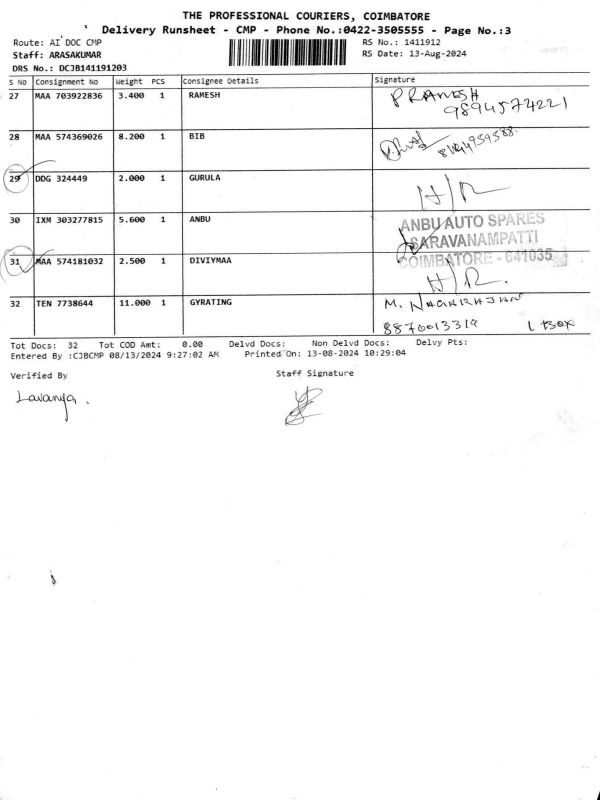 THE PROFESSIONAL COURIERS, COIMBATORE
Delivery Runsheet - CMP - Phone No.:0422-3505555 - Page No.:3
Route: AI DOC CMP RS No.: 1411912
Staff: ARASAKUMAR RS Date: 13-Aug-2024
DRS No.: DCJB141191203
S No Consignment No Weight PCS Consignee Details Signature
27 MAA 703922836 3.400 1 RAMESH PRAMESH
9894574221
28 MAA 574369026 8.200 1 BIB
29 DDG 324449 2.000 1 GURULA H/R
30 IXM 303277815 5.600 1 ANBU ANBU AUTO SPARES
SARAVANAMPATTI
COIMBATORE - 641035
31 MAA 574181032 2.500 1 DIVIYMAA H/R.
32 TEN 7738644 11.000 1 GYRATING M. NAGARAJAN
8870013319 1 BOX
Tot Docs: 32 Tot COD Amt: 0.00 Delvd Docs: Non Delvd Docs: Delvy Pts:
Entered By :CJBCMP 08/13/2024 9:27:02 AM Printed On: 13-08-2024 10:29:04
Verified By Staff Signature
Lavanya.